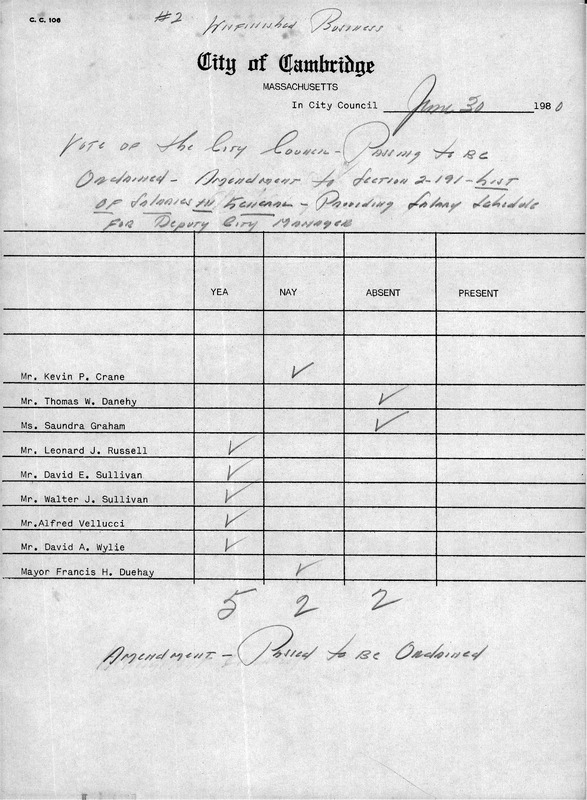 C. C. 106
#2 Unfinished Business
City of Cambridge
MASSACHUSETTS
In City Council June 30 1980
Vote of the City Council - Passing to be
Ordained - Amendment to Section 2-191 - List
of Salaries in General - Providing Salary Schedule
for Deputy City Manager
YEA NAY ABSENT PRESENT
Mr. Kevin P. Crane ✓
Mr. Thomas W. Danehy ✓
Ms. Saundra Graham ✓
Mr. Leonard J. Russell ✓
Mr. David E. Sullivan ✓
Mr. Walter J. Sullivan ✓
Mr.Alfred Vellucci ✓
Mr. David A. Wylie ✓
Mayor Francis H. Duehay ✓
5 2 2
Amendment - Passed to be Ordained